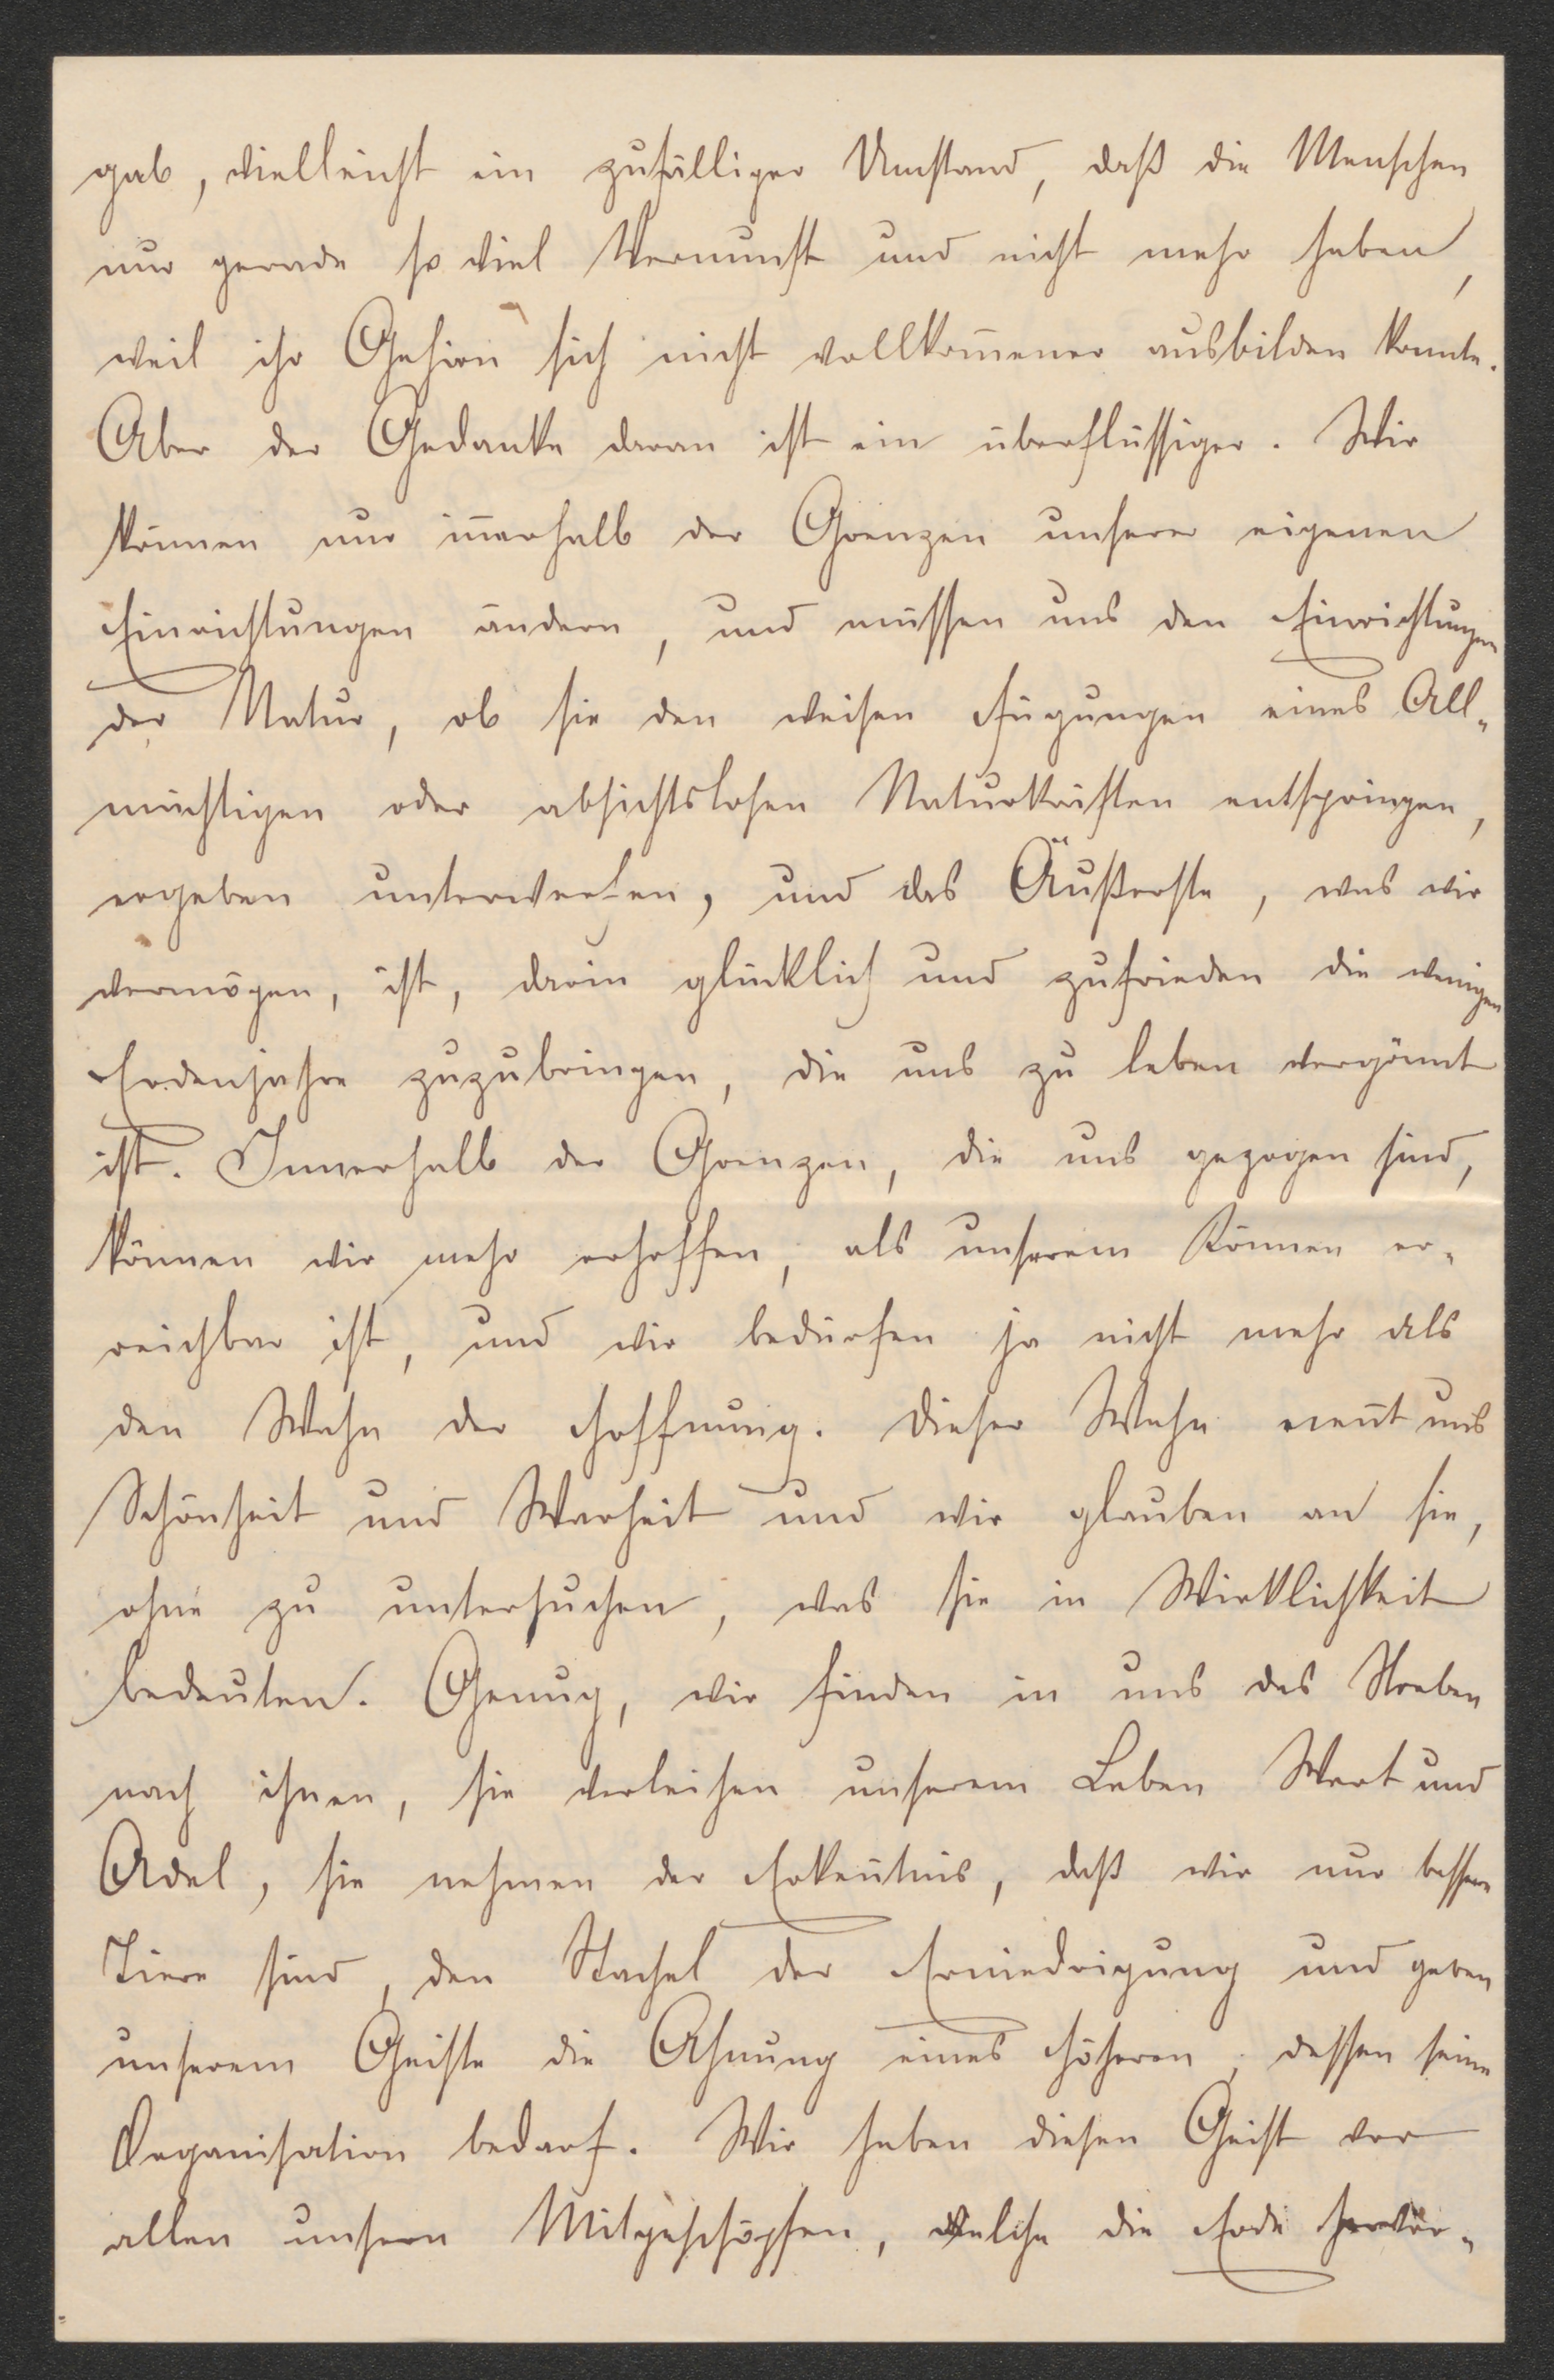 gab, vielleicht ein zufälliger Umstand, daß die Menschen
nur gerade so viel Vernunft und nicht mehr haben,
weil ihr Gehirn sich nicht vollkom̄ener ausbilden konnte.
Aber der Gedanke daran ist ein überflüssiger. Wir
können nur in̄erhalb der Grenzen unserer eigenen
Einrichtungen ändern, und müssen uns den Einrichtungen
der Natur, ob sie den weisen Fügungen eines All-
mächtigen oder absichtslosen Naturkräften entspringen,
ergeben unterwerfen, und das Äußerste, was wir
vermögen, ist, darin glücklich und zufrieden die wenigen
Erdenjahre zuzubringen, die uns zu leben vergönnt
ist. Innerhalb der Grenzen, die uns gezogen sind,
können wir mehr erhoffen, als unserem Können er-
reichbar ist, und wir bedürfen ja nicht mehr als
den Wahn der Hoffnung. Dieser Wahn nen̄t uns
Schönheit und Warheit und wir glauben an sie,
ohne zu untersuchen, was sie in Wirklichkeit
bedeuten. Genug, wir finden in uns das Streben
nach ihnen, sie verleihen unserem Leben Wert und
Adel, sie nehmen der Erken̄tnis, daß wir nur bessere
Tiere sind, den Stachel der Erniedrigung und geben
unserem Geiste die Ahnung eines Höheren, dessen seine
Organisation bedarf. Wir haben diesen Geist vor
allen unsern Mitgeschöpfen, welche die Erde hervor-